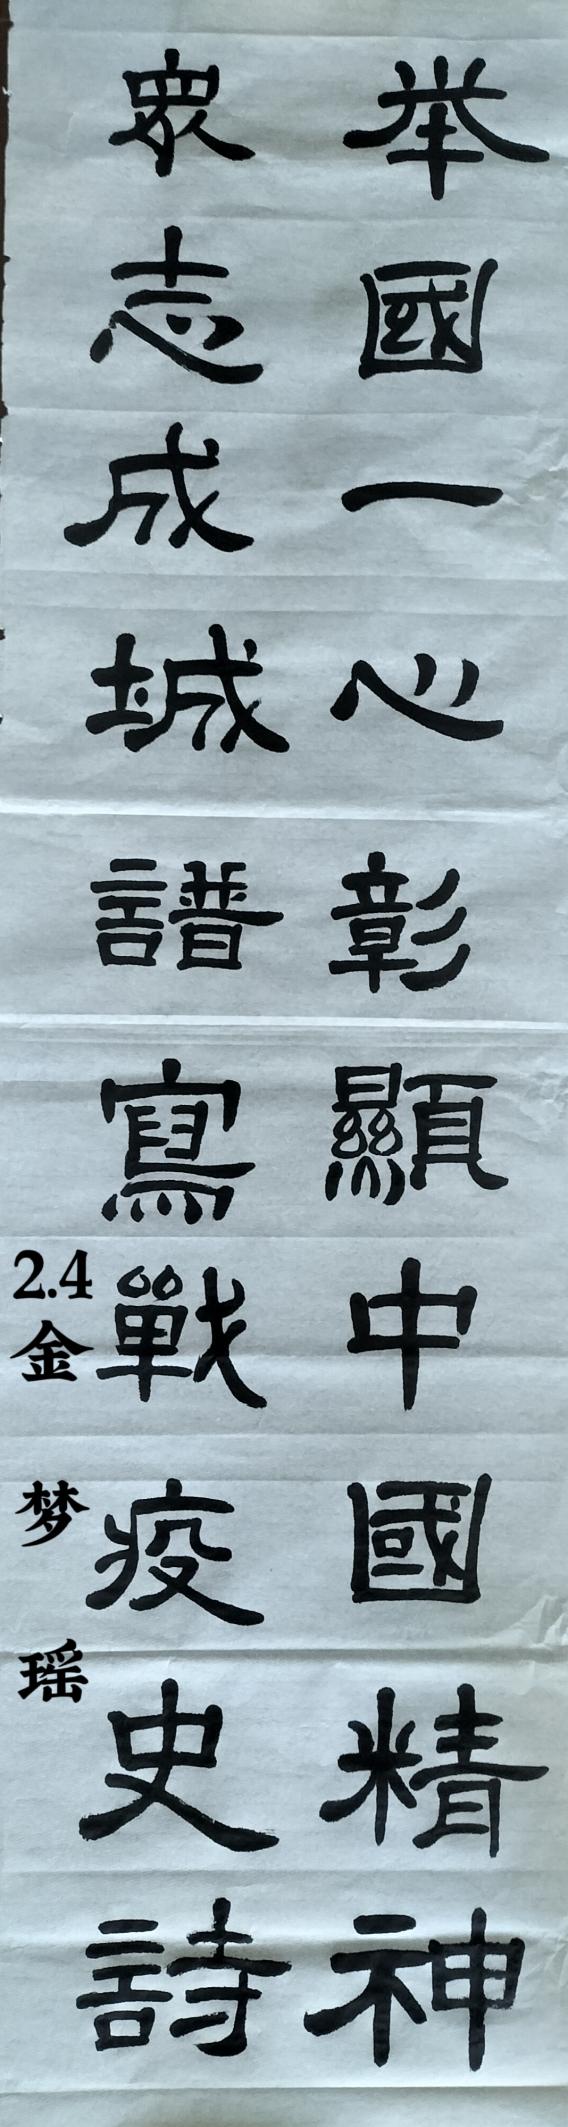 举國一心彰顯中國精神
眾志成城譜寫戰疫史詩
2.4金梦瑶